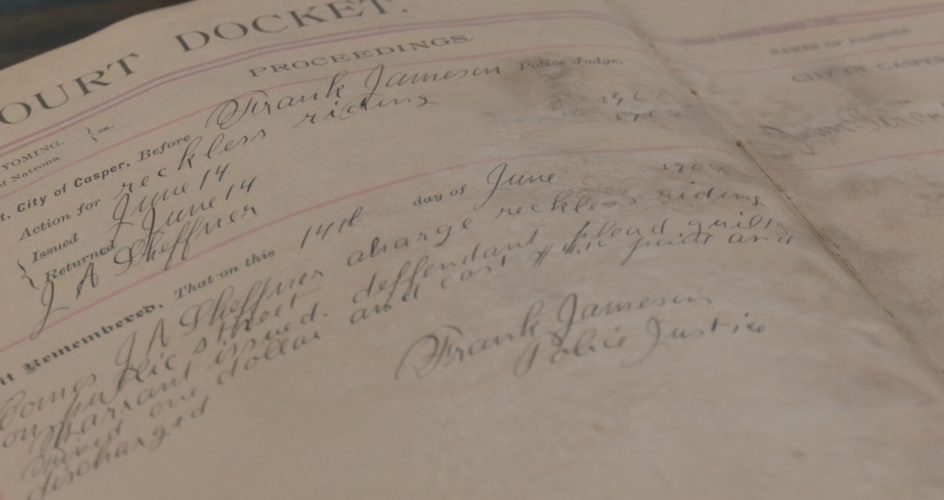 OURT DOCKET.
PROCEEDINGS.
YOMING.
of Natrona
City of Casper. Before Frank Jameson Police Judge.
Action for reckless riding
Issued June 14
Returned June 14
J A Sheffner
Remembered, That on this 14th day of June 190
Comes J A Sheffner charge reckless riding
on public street. deffendant plead guilty
Warrant issued.
fined one dollar and cost paid and
discharged
Frank Jameson
Police Justice
NAMES OF
CITY OF CASPER